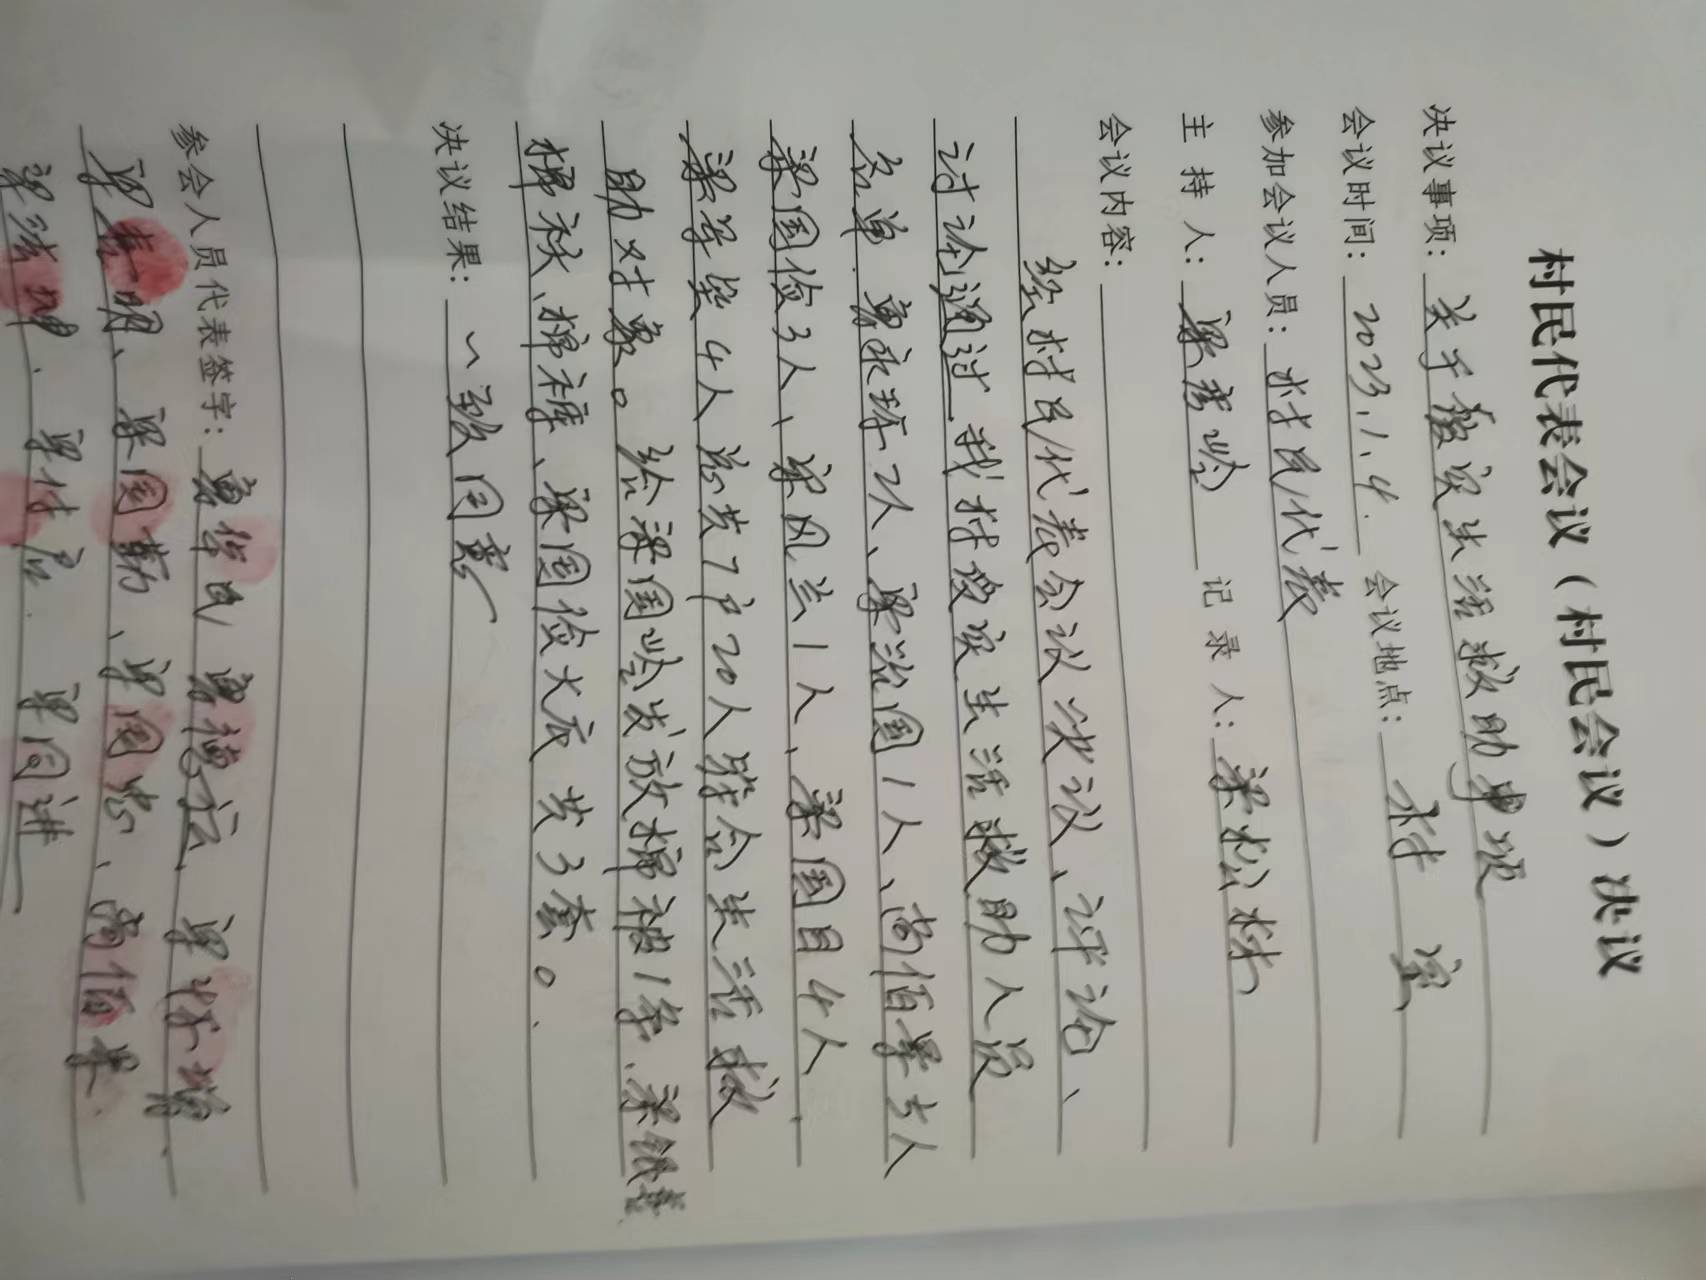 村民代表会议（村民会议）决议
决议事项：关于发放生活救助事项
会议时间：2023.1.4. 会议地点：村室
参加会议人员：村民代表
主 持 人：梁秀岭 记 录 人：梁松林
会议内容：
经村民代表会议决议、评论、
讨论通过，我村受灾生活救助人员
名单：永 2人、梁治国1人、尚佰 人
梁国俭3人、梁风兰1人、梁国目4人
梁 4人 共7户20人符合生活救
助对象。给梁国岭发放棉被1条、梁银
棉袄、棉裤、梁国俭大衣 共3套。
决议结果：一致同意
参会人员代表签字： 民 德 、
明、梁国勤、梁国 、尚佰
梁法坤、梁 梁同进